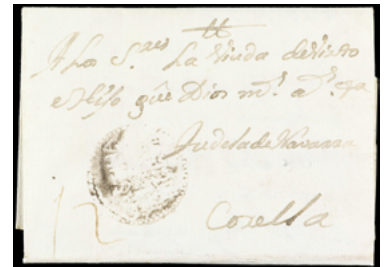 A Los S.res La Viuda de Vizto
e Hijo que Dios m.s a.s
Tudela de Navarra
12
Corella